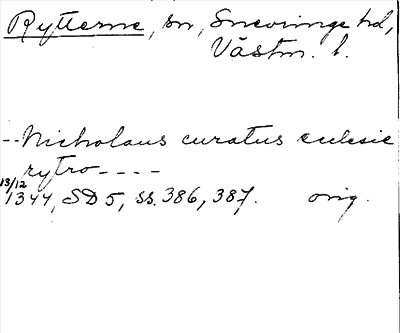 Rytterne, sn, Snevringe hd,
Västm. l.
-- Nicholaus curatus eclesie
rytro ----
13/12
1344, SD 5, ss. 386, 387. orig.